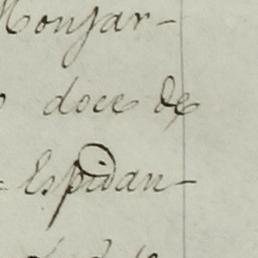 Monjar-
doce de
Espidan-